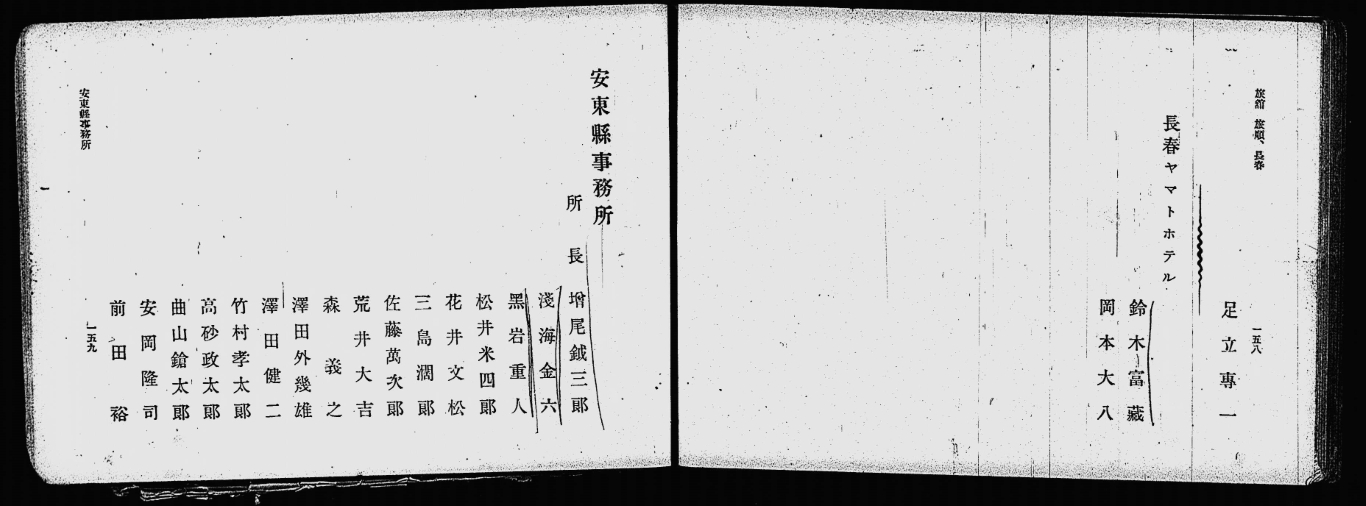 旅館 旅順、長春
一五八
足立專一
長春ヤマトホテル
鈴木富藏
岡本大八
安東縣事務所
所長 增尾鉞三郞
淺海金六
黑岩重人
松井米四郞
花井文松
三島潤郞
荒井大吉
佐藤萬次郞
森義之
澤田外幾雄
澤田健二
竹村孝太郞
高砂政太郞
曲山鎗太郞
安岡隆司
前田裕
安東縣事務所
一五九